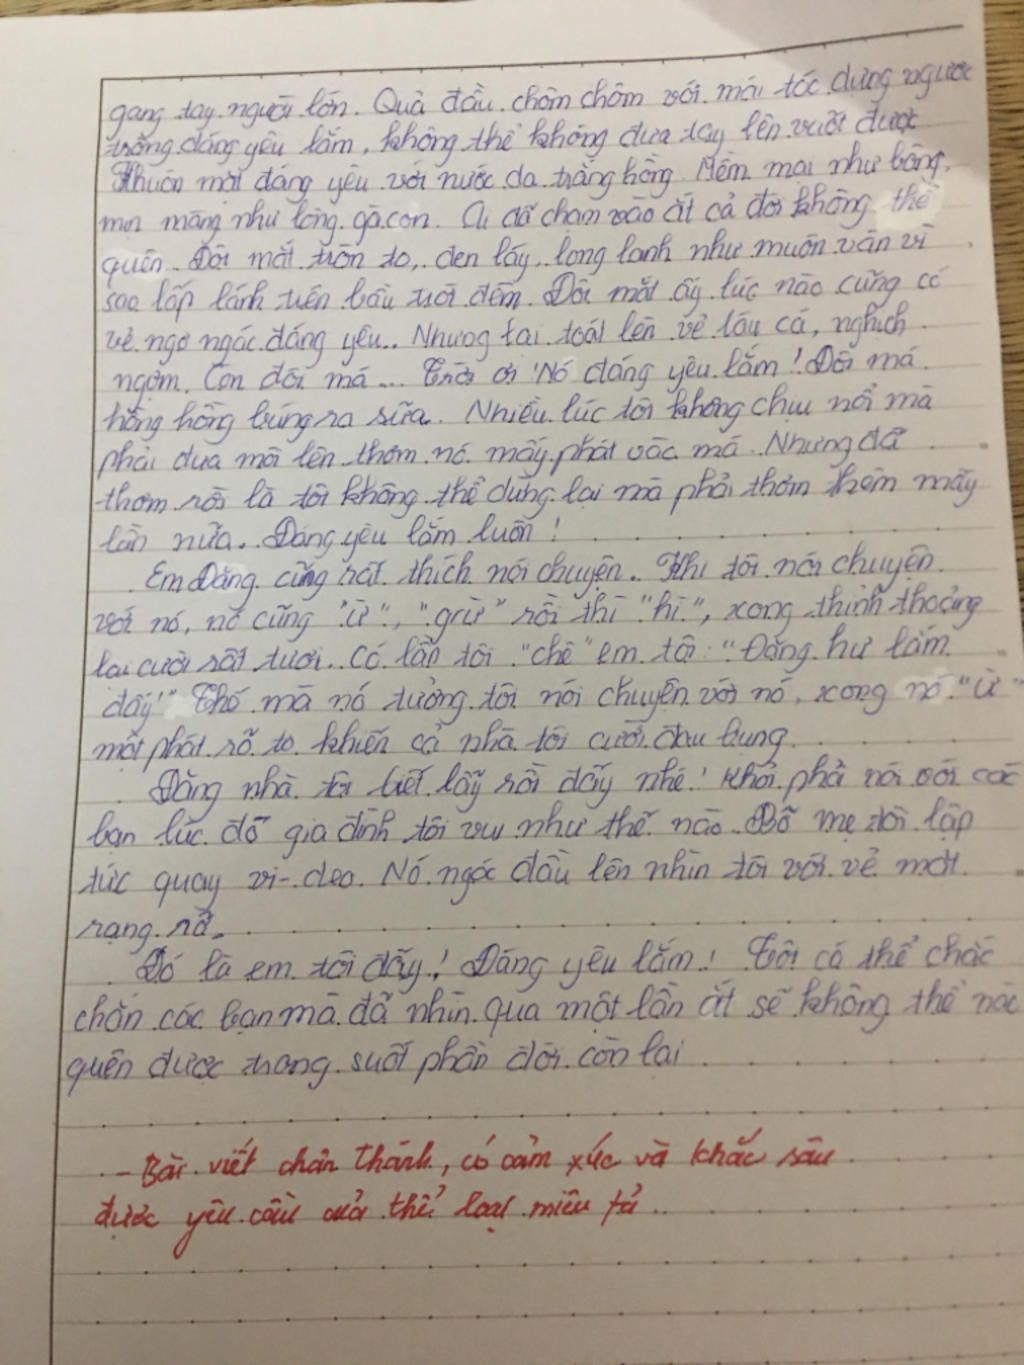 gang tay người lớn. Quả đầu chôm chôm với mái tóc dựng ngược
trông đáng yêu lắm, không thể không đưa tay lên vuốt được
Khuôn mặt đáng yêu với nước da trắng hồng. Mềm mại như bông,
mịn màng như lông gà con. Ai đã chạm vào ắt cả đời không thể
quên. Đôi mắt tròn to, đen láy, long lanh như muôn vàn vì
sao lấp lánh trên bầu trời đêm. Đôi mắt ấy lúc nào cũng có
vẻ ngơ ngác đáng yêu.. Nhưng lại toát lên vẻ láu cá, nghịch
ngợm. Còn đôi má... Trời ơi! Nó đáng yêu lắm! Đôi má
hồng hồng búng ra sữa. Nhiều lúc tôi không chịu nổi mà
phải đưa môi lên thơm nó mấy phát vào má. Nhưng đã
thơm rồi là tôi không thể dừng lại mà phải thơm thêm mấy
lần nữa. Đáng yêu lắm luôn!
Em Đăng cũng rất thích nói chuyện. Khi tôi nói chuyện
với nó, nó cũng "ừ", "grừ" rồi thì "hì", xong thỉnh thoảng
lại cười rất tươi. Có lần tôi "chê" em tôi: "Đăng hư lắm
đấy!" Thế mà nó tưởng tôi nói chuyện với nó, xong nó "ừ"
một phát rõ to khiến cả nhà tôi cười đau bụng.
Đăng nhà tôi biết lẫy rồi đấy nhé! Khỏi phải nói với các
bạn lúc đó gia đình tôi vui như thế nào. Bố mẹ tôi lập
tức quay vi-deo. Nó ngóc đầu lên nhìn tôi với vẻ mặt
rạng rỡ.
Đó là em tôi đấy! Đáng yêu lắm! Tôi có thể chắc
chắn các bạn mà đã nhìn qua một lần ắt sẽ không thể nào
quên được trong suốt phần đời còn lại
- Bài viết chân thành, có cảm xúc và khắc sâu
được yêu cầu của thể loại miêu tả.